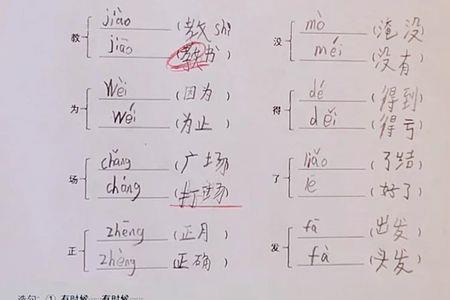 教 jiào (教 sh
jiāo (教书)
为 Wèi (因为)
Wéi (为止)
场 chǎng (广场)
cháng (打场)
正 zhēng (正月)
zhèng (正确)
没 mò (淹没)
méi (没有)
得 dé (得到)
děi (得亏)
了 liǎo (了结)
le (好了)
发 fā (出发)
fà (头发)
造句：(1) 有时候……有时候……